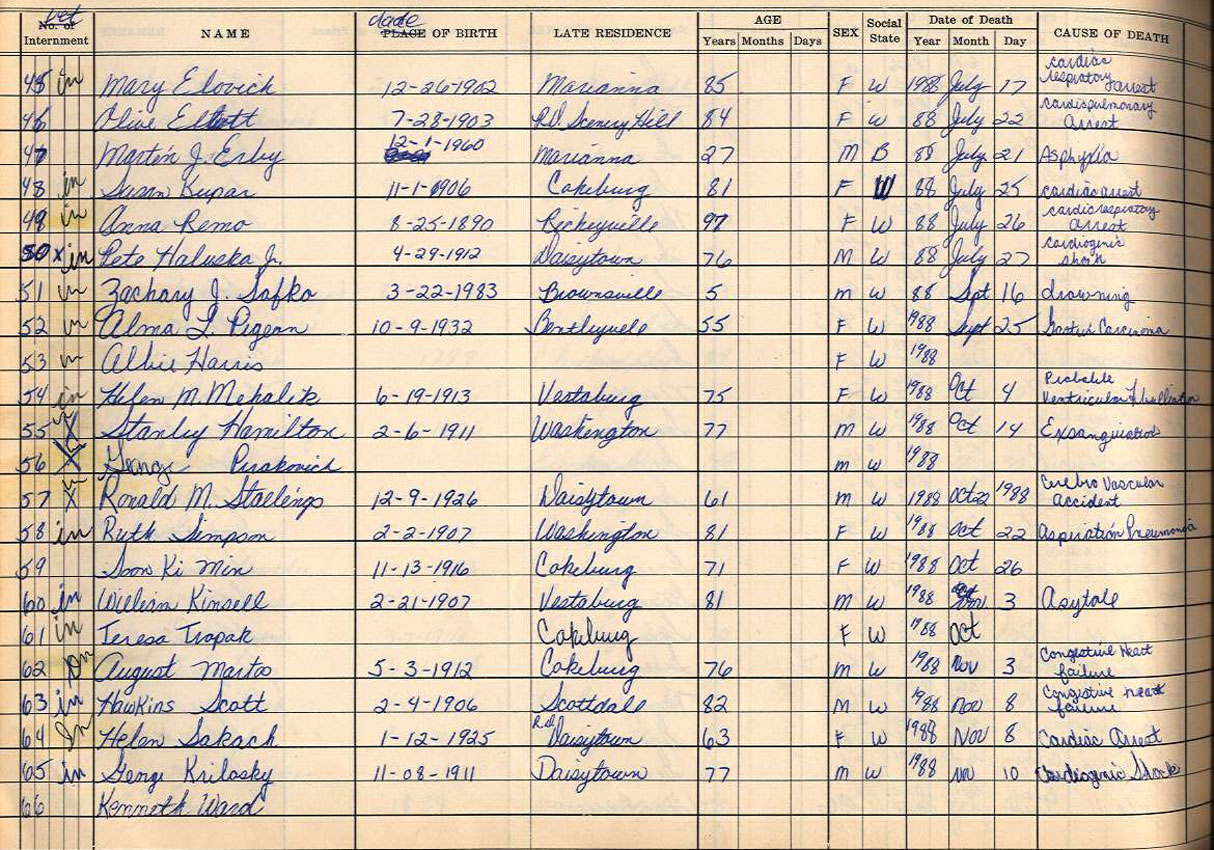 vet date
No. of Internment NAME PLACE OF BIRTH LATE RESIDENCE AGE Years Months Days SEX Social State Date of Death Year Month Day CAUSE OF DEATH
45 in Mary Elovich 12-26-1902 Marianna 85 F W 1988 July 17 cardiac respiratory arrest
46 Olive Elliott 7-28-1903 R.D. Scenery Hill 84 F W 88 July 22 cardiopulmonary Arrest
47 Martin J. Erby 12-1-1960 Marianna 27 M B 88 July 21 Asphyxia
48 in Susan Kupar 11-1-1906 Cokeburg 81 F W 88 July 25 cardiac arrest
49 in Anna Remo 8-25-1890 Richeyville 97 F W 88 July 26 cardic respiratory arrest
50 x in Pete Haluska Jr. 4-29-1912 Daisytown 76 M W 88 July 27 cardiogenic
51 in Zachary J. Sofko 3-22-1983 Brownsville 5 m W 88 Sept 16 drowning
52 in Alma L. Pigeon 10-9-1932 Bentleyvele 55 F W 1988 Sept 25 Carcinoma
53 in Harris F W 1988
54 in Helen M. Mehalik 6-19-1913 Vestaburg 75 F W 1988 Oct 4 Probable Ventricular
55 in X Stanley Hamilton 2-6-1911 Washington 77 m W 1988 Oct 14
56 X George Pirakovich m W 1988
57 in X Ronald M. Stallings 12-9-1926 Daisytown 61 m W 1988 Oct 22 1988 Cerebro Vascular Accident
58 in Ruth Simpson 2-2-1907 Washington 81 F W 1988 Oct 22 Aspiration Pneumonia
59 Soon Ki Min 11-13-1916 Cokeburg 71 F W 1988 Oct 26
60 in William Kinsell 2-21-1907 Vestaburg 81 M W 1988 3 Asytole
61 in Teresa Tropak Cokeburg F W 1988 Oct
62 August Martos 5-3-1912 Cokeburg 76 m W 1988 Nov 3 Congestive Heart failure
63 in Hawkins Scott 2-4-1906 Scottdale 82 M W 1988 Nov 8 Congestive heart failure
64 In Helen Sakach 1-12-1925 R.D. Daisytown 63 F W 1988 Nov 8 Cardiac Arrest
65 in George Krilosky 11-08-1911 Daisytown 77 m W 1988 Nov 10 Cardiogenic Shock
66 Kenneth Ward